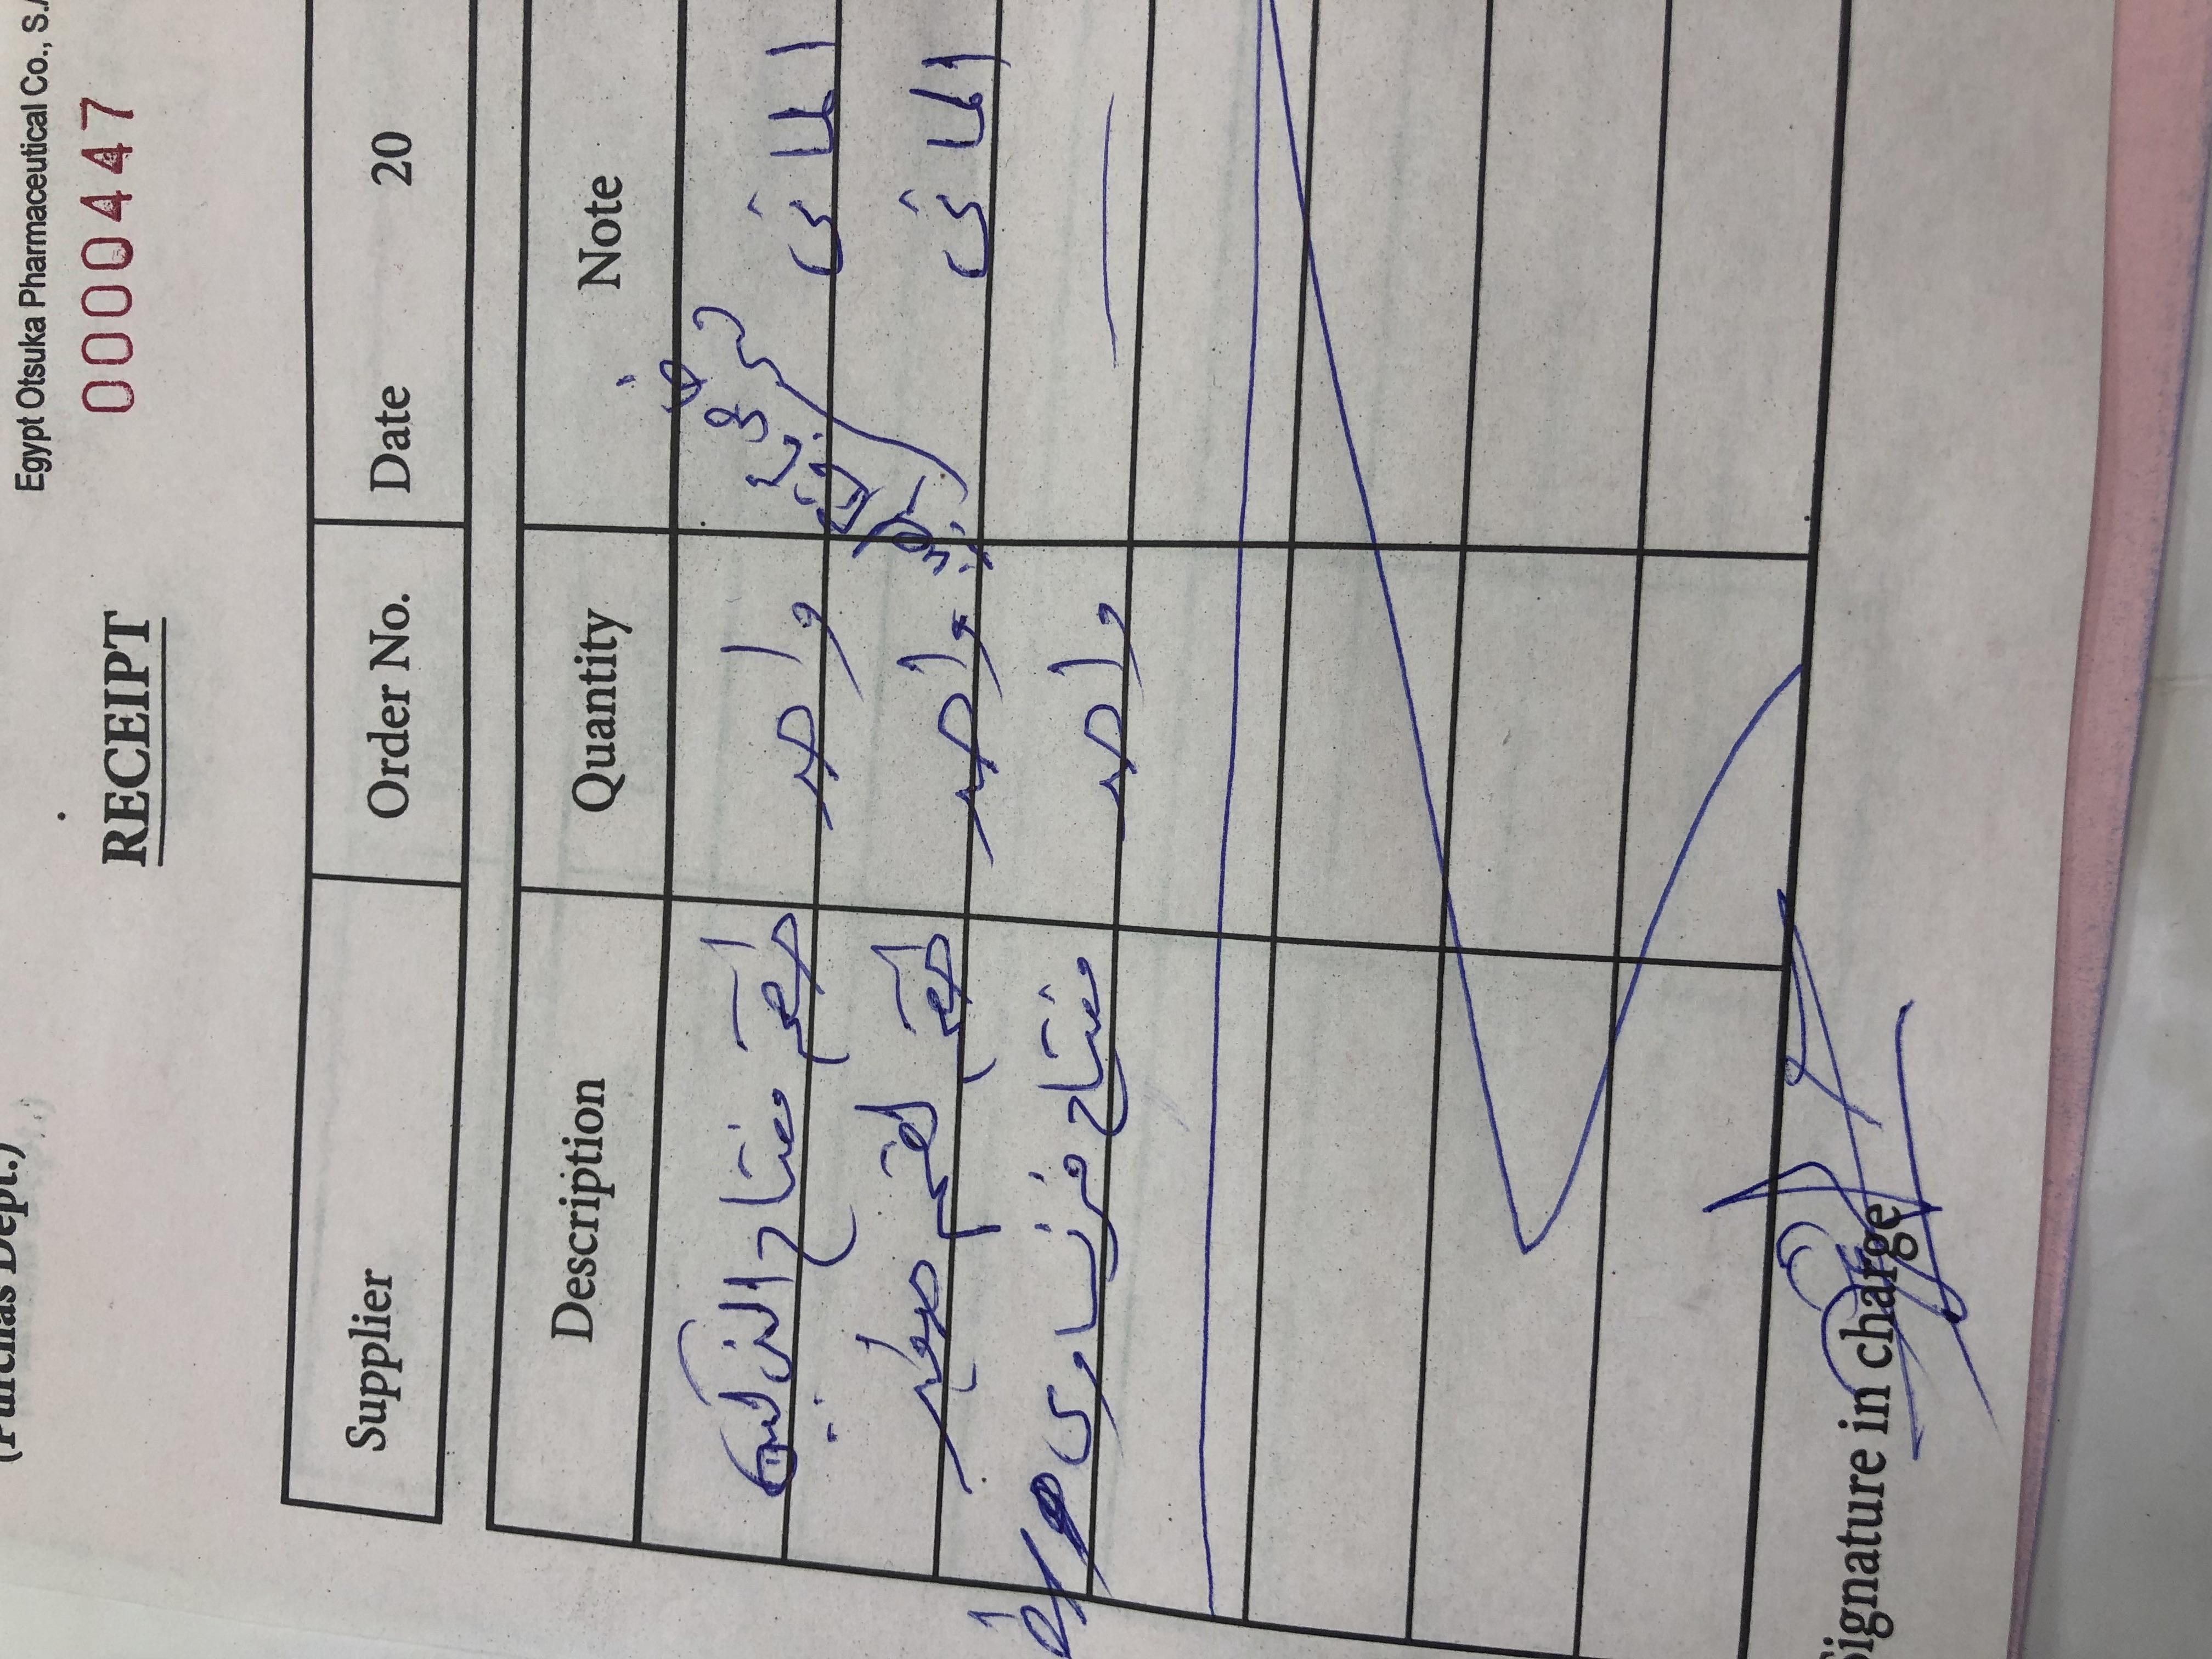 (Purchas Dept.)
Egypt Otsuka Pharmaceutical Co., S.A
0000447
RECEIPT
Supplier Order No. Date 20
Description Quantity Note
طقم مفتاح واحد المانى
طقم لقم صغير واحد المانى
مفتاح فرنساوى وسط واحد —
Signature in charge